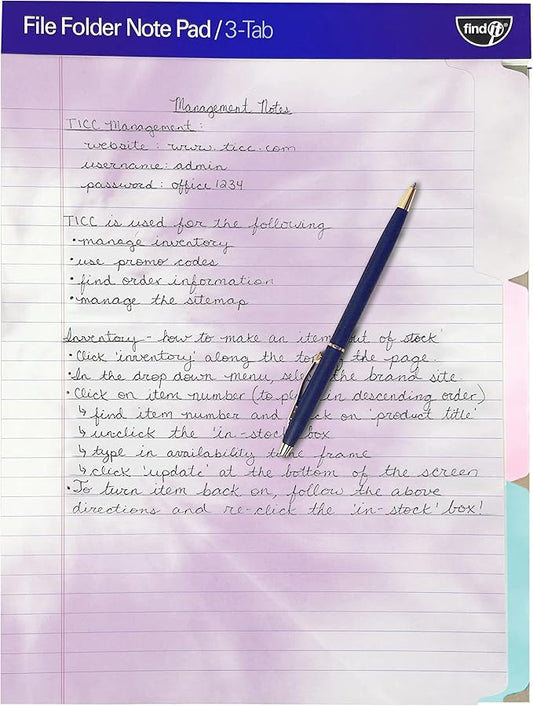 File Folder Note Pad / 3-Tab
find it
Management Notes
TICC Management:
website: www.ticc.com
username: admin
password: office1234
TICC is used for the following
• manage inventory
• use promo codes
• find order information
• manage the sitemap
Inventory - how to make an item out of stock'
• Click 'inventory' along the top the page.
• In the drop down menu, select the brand site.
• Click on item number (to in descending order)
↳ find item number and click on 'product title'
↳ unclick the 'in-stock' box
↳ type in availability time frame
↳ click 'update' at the bottom of the screen
• To turn item back on, follow the above
directions and re-click the 'in-stock' box!